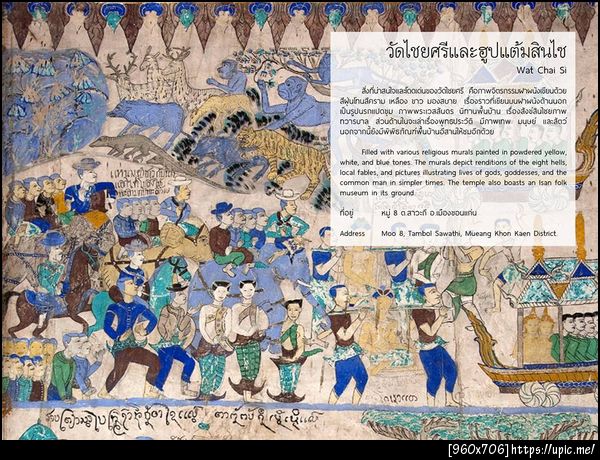 วัดไชยศรีและฮูปแต้มสินไซ
Wat Chai Si
สิ่งที่น่าสนใจและโดดเด่นของวัดไชยศรี คือภาพจิตรกรรมฝาผนังเขียนด้วย
สีฝุ่นโทนสีคราม เหลือง ขาว มองสบาย เรื่องราวที่เขียนบนฝาผนังด้านนอก
เป็นรูปนรกแปดขุม ภาพพระเวสสันดร นิทานพื้นบ้าน เรื่องสังข์สินไชยภาพ
ทวารบาล ส่วนด้านในจะเล่าเรื่องพุทธประวัติ มีภาพเทพ มนุษย์ และสัตว์
นอกจากนี้ยังมีพิพิธภัณฑ์พื้นบ้านอีสานให้ชมอีกด้วย
Filled with various religious murals painted in powdered yellow,
white, and blue tones. The murals depict renditions of the eight hells,
local fables, and pictures illustrating lives of gods, goddesses, and the
common man in simpler times. The temple also boasts an Isan folk
museum in its ground.
ที่อยู่ หมู่ 8 ต.สาวะถี อ.เมืองขอนแก่น
Address Moo 8, Tambol Sawathi, Mueang Khon Kaen District
[960x706]https://upic.me/